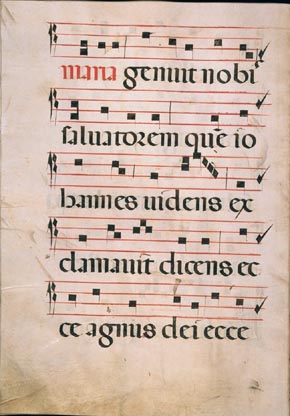 maria genuit nobi
salvatorem quē io
hannes uidens ex
clamauit dicens ec
ce agnus dei ecce